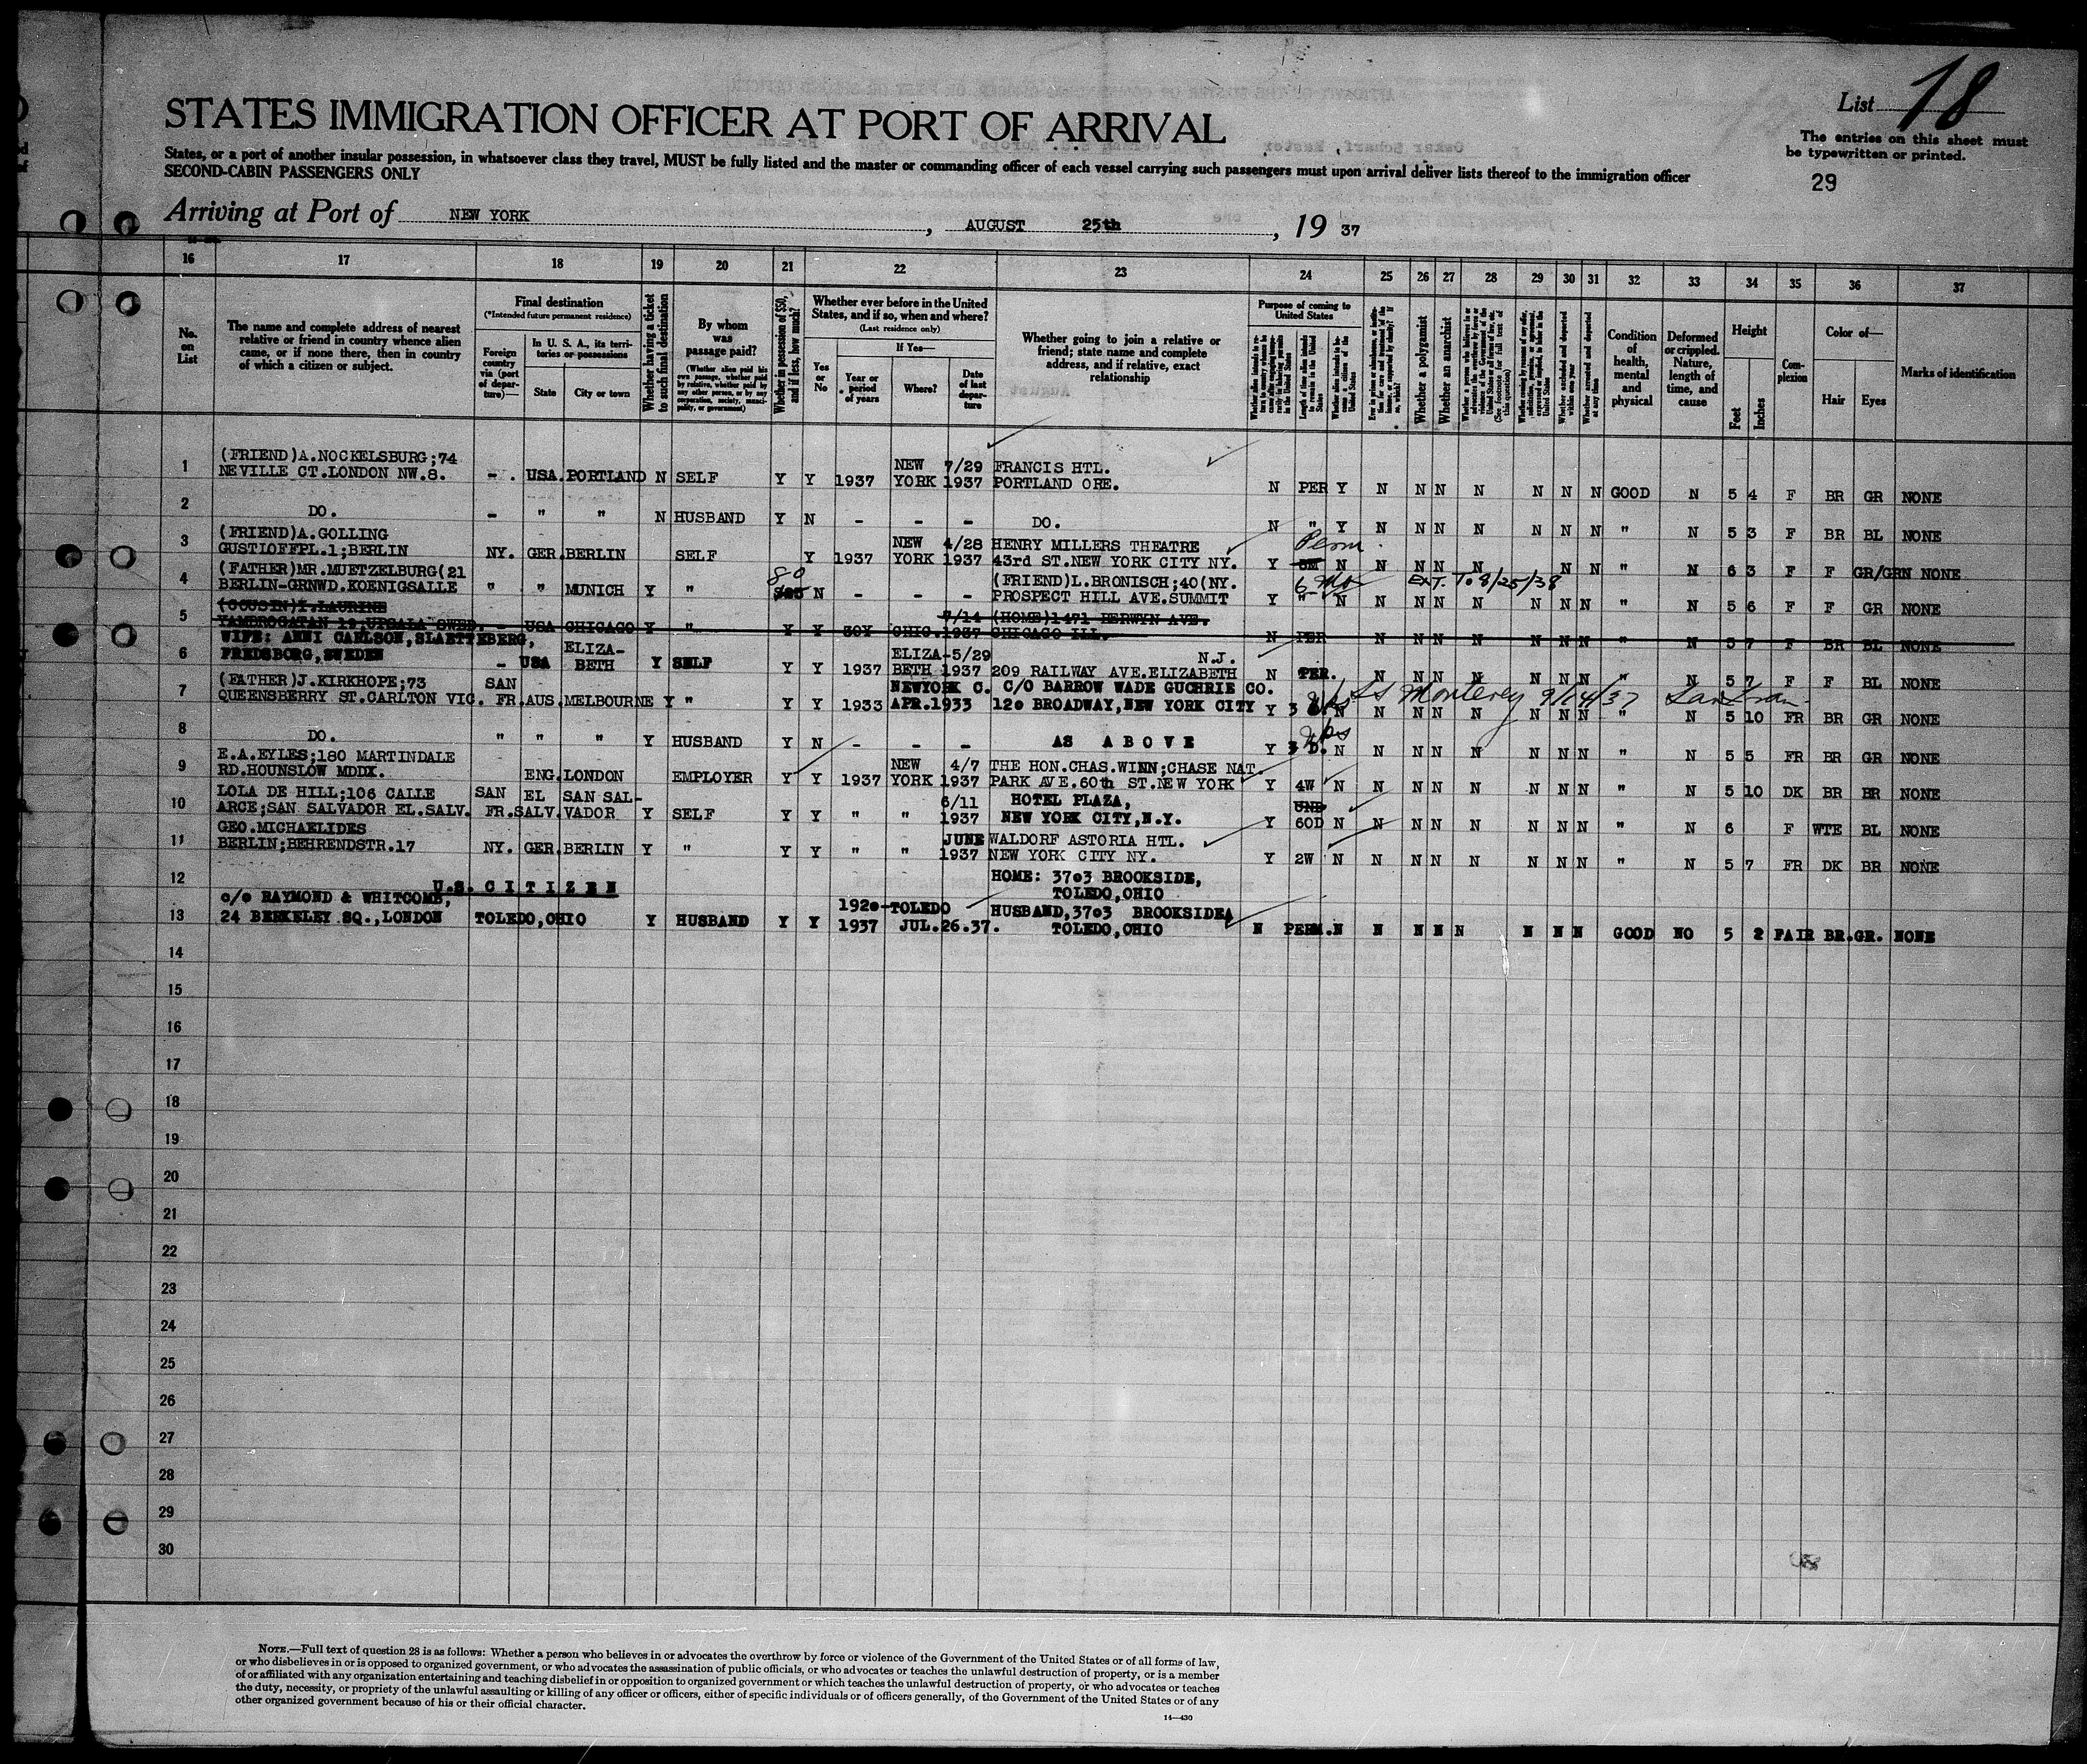 List 18
STATES IMMIGRATION OFFICER AT PORT OF ARRIVAL
The entries on this sheet must
be typewritten or printed.
States, or a port of another insular possession, in whatsoever class they travel, MUST be fully listed and the master or commanding officer of each vessel carrying such passengers must upon arrival deliver lists thereof to the immigration officer
SECOND-CABIN PASSENGERS ONLY
29
Arriving at Port of NEW YORK, AUGUST 25th, 19 37
16 17 18 19 20 21 22 23 24 25 26 27 28 29 30 31 32 33 34 35 36 37
No. on List
The name and complete address of nearest
relative or friend in country whence alien
came, or if none there, then in country
of which a citizen or subject.
Final destination
(*Intended future permanent residence)
Foreign country via (port of departure)—
In U. S. A., its territories or possessions
State City or town
Whether having a ticket to such final destination
By whom was passage paid?
(Whether alien paid his own passage, whether paid by relative, whether paid by any other person, or by any corporation, society, municipality, or government)
Whether in possession of $50, and if less, how much?
Whether ever before in the United
States, and if so, when and where?
(Last residence only)
Yes or No
If Yes—
Year or period of years
Where?
Date of last departure
Whether going to join a relative or
friend; state name and complete
address, and if relative, exact
relationship
Purpose of coming to United States
Whether a polygamist
Whether an anarchist
Condition of health, mental and physical
Deformed or crippled. Nature, length of time, and cause
Height
Feet Inches
Complexion
Color of—
Hair Eyes
Marks of identification
1 (FRIEND)A.NOCKELSBURG;74
NEVILLE CT.LONDON NW.8. - . USA.PORTLAND N SELF Y Y 1937 NEW YORK 7/29 1937 FRANCIS HTL. PORTLAND ORE. N PER Y N N N N N N N GOOD N 5 4 F BR GR NONE
2 DO. - " " N HUSBAND Y N - - - DO. N " Y N N N N N N N " N 5 3 F BR BL NONE
3 (FRIEND)A.GOLLING
GUSTLOFFPL.1;BERLIN NY. GER.BERLIN SELF Y 1937 NEW YORK 4/28 1937 HENRY MILLERS THEATRE 43rd ST.NEW YORK CITY NY. Y Perm N N N N N N N " N 6 3 F F GR/GRN NONE
4 (FATHER)MR.MUETZELBURG(21
BERLIN-GRNWD.KOENIGSALLE " " MUNICH Y " 80 N - - - (FRIEND)L.BRONISCH;40(NY. PROSPECT HILL AVE.SUMMIT Y " 6 Mo N EXT. To 8/25/38 N N N N N N N " N 5 6 F F GR NONE
5 (COUSIN)I.LAURINE
YAMBROGATAN 19,UPSALA SWED. - USA CHICAGO Y " Y Y 30Y CHIC. 7/14 1937 (HOME)1471 BERWYN AVE. CHICAGO ILL. N PER N N N N N N N " N 5 7 F BR BL NONE
6 WIFE: ANNI CARLSON,SLAETTEBERG,
FREDSBORG,SWEDEN - USA ELIZA-BETH Y SELF Y Y 1937 ELIZA-BETH 5/29 1937 N.J. 209 RAILWAY AVE.ELIZABETH N PER. N N N N N N N " N 5 7 F F BL NONE
7 (FATHER)J.KIRKHOPE;73
QUEENSBERRY ST.CARLTON VIC. SAN FR. AUS.MELBOURNE Y " Y Y 1933 NEWYORK C. APR.1933 C/O BARROW WADE GUCHRIE CO. 120 BROADWAY,NEW YORK CITY Y 3 SS Monterey 9/14/37 San Fran. N N N N N N N N " N 5 10 FR BR GR NONE
8 DO. " " " Y HUSBAND Y N - - - AS ABOVE Y 3 D. N N N N N N N N " N 5 5 FR BR GR NONE
9 E.A.EYLES;180 MARTINDALE
RD.HOUNSLOW MDDX. ENG.LONDON EMPLOYER Y Y 1937 NEW YORK 4/7 1937 THE HON.CHAS.WINN;CHASE NAT. PARK AVE.60th ST.NEW YORK Y 4W N N N N N N N N " N 5 10 DK BR BR NONE
10 LOLA DE HILL;106 CALLE
ARCE;SAN SALVADOR EL.SALV. SAN FR. EL SALV. SAN SAL-VADOR Y SELF Y Y " " 6/11 1937 HOTEL PLAZA, NEW YORK CITY,N.Y. Y 60D N N N N N N N N " N 6 F WTE BL NONE
11 GEO.MICHAELIDES
BERLIN;BEHRENDSTR.17 NY. GER.BERLIN Y " Y Y " " JUNE 1937 WALDORF ASTORIA HTL. NEW YORK CITY NY. Y 2W N N N N N N N N " N 5 7 FR DK BR NONE
12 U.S. CITIZEN HOME: 3703 BROOKSIDE, TOLEDO,OHIO
13 c/o RAYMOND & WHITCOMB,
24 BERKELEY SQ.,LONDON TOLEDO,OHIO Y HUSBAND Y Y 1920-1937 TOLEDO JUL.26.37. HUSBAND,3703 BROOKSIDEA TOLEDO,OHIO N PERM.N N N N N N N N GOOD NO 5 2 FAIR BR.GR. NONE
14
15
16
17
18
19
20
21
22
23
24
25
26
27
28
29
30
NOTE.—Full text of question 28 is as follows: Whether a person who believes in or advocates the overthrow by force or violence of the Government of the United States or of all forms of law,
or who disbelieves in or is opposed to organized government, or who advocates the assassination of public officials, or who advocates or teaches the unlawful destruction of property, or is a member
of or affiliated with any organization entertaining and teaching disbelief in or opposition to organized government or which teaches the unlawful destruction of property, or who advocates or teaches
the duty, necessity, or propriety of the unlawful assaulting or killing of any officer or officers, either of specific individuals or of officers generally, of the Government of the United States or of any
other organized government because of his or their official character.
14—430